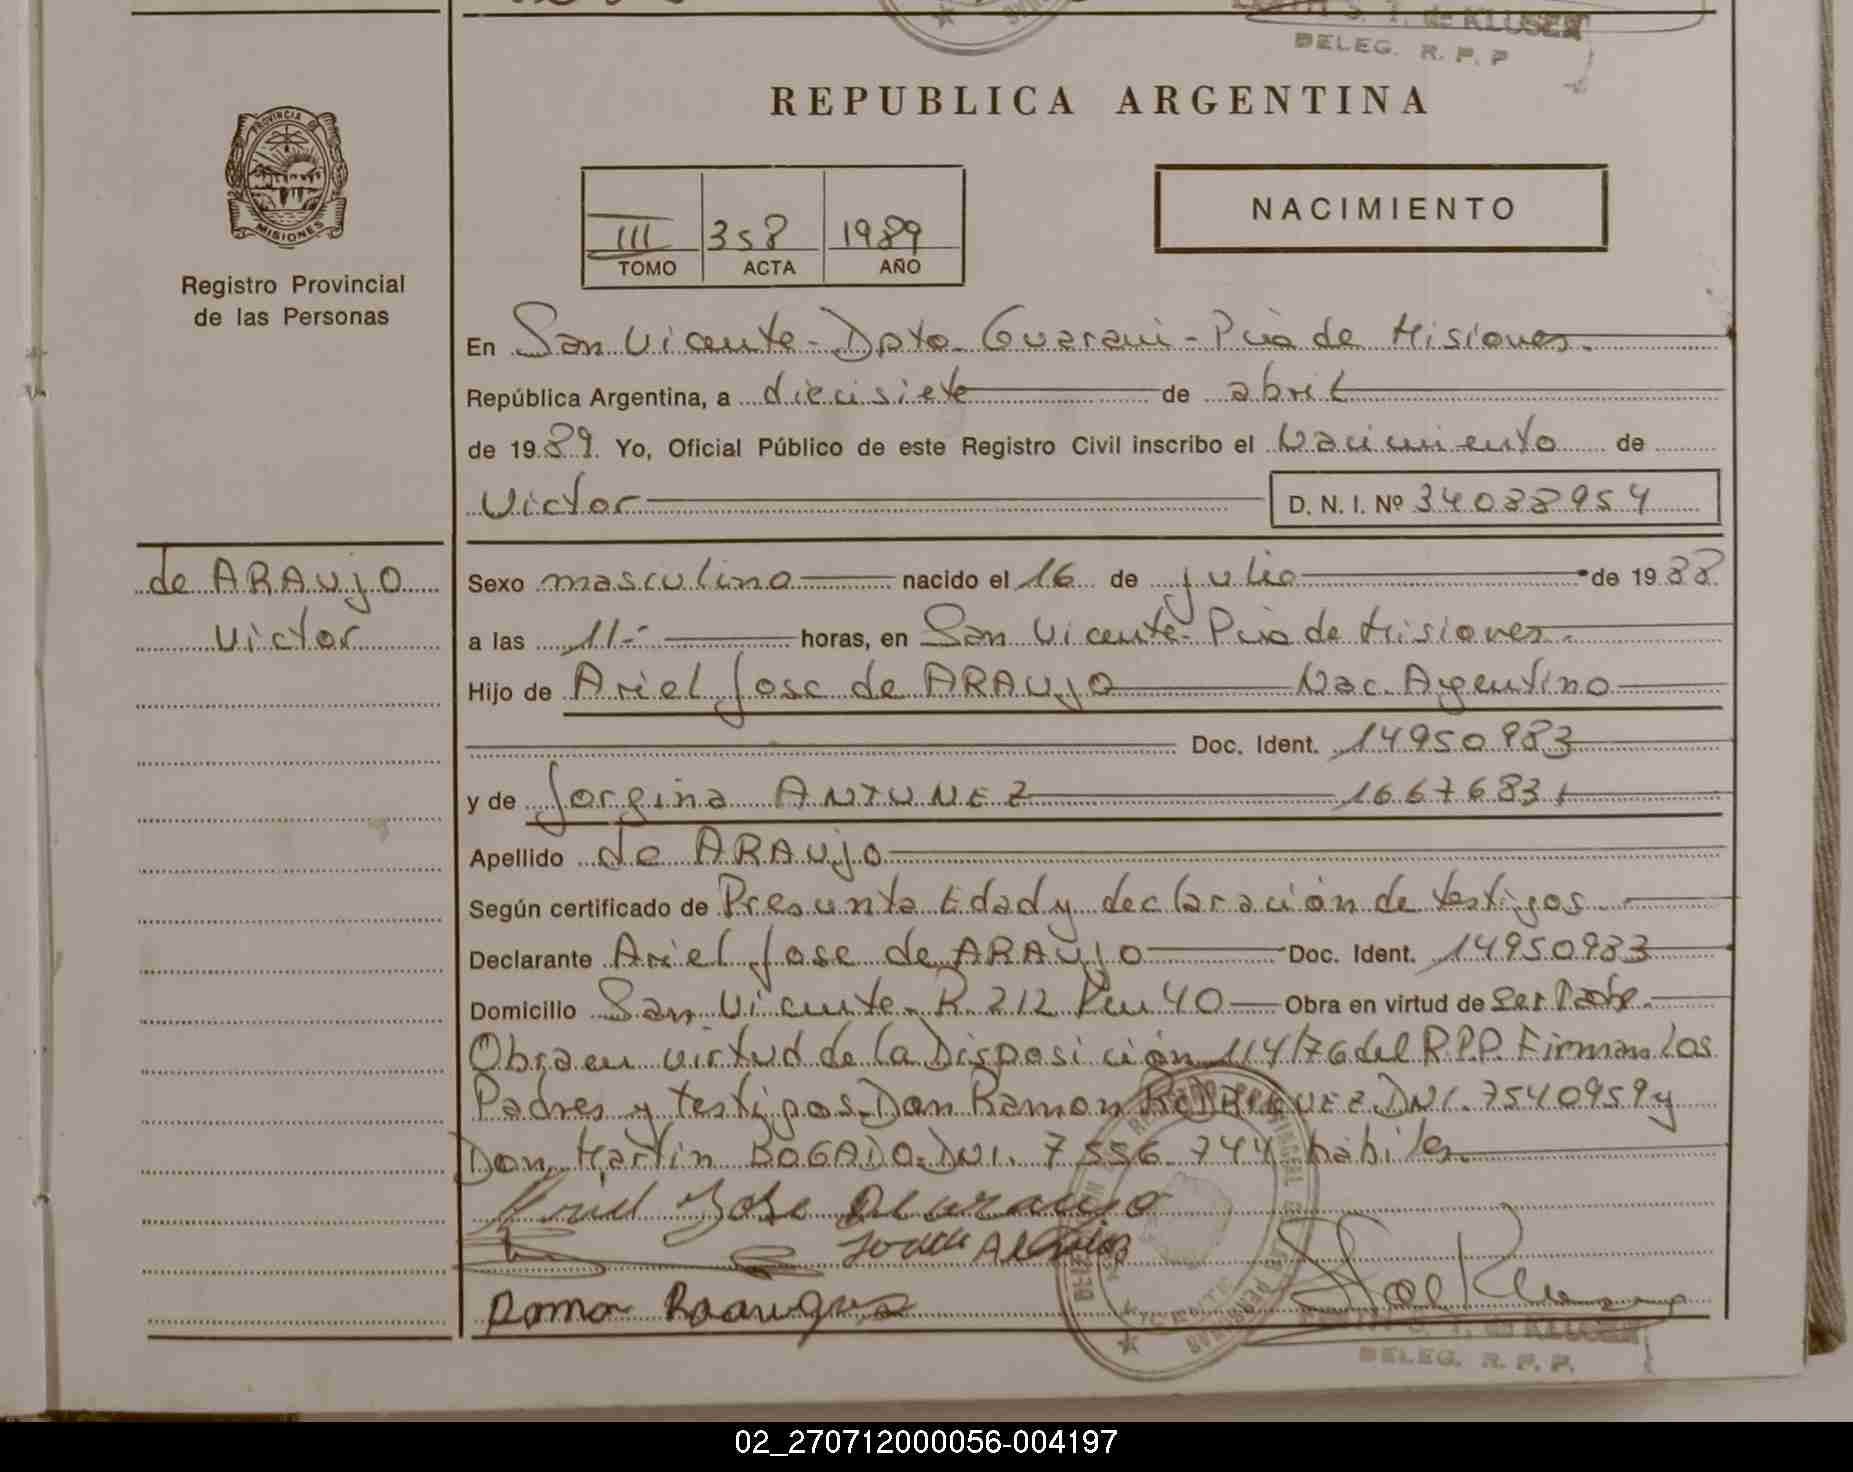 de KLUSER
BELEG. R. P. P
REPUBLICA ARGENTINA
PROVINCIA DE
MISIONES
Registro Provincial
de las Personas
III 358 1989
TOMO ACTA AÑO
NACIMIENTO
En San Vicente - Dpto. Guarani - Pcia de Misiones.
República Argentina, a diecisiete de abril
de 1989. Yo, Oficial Público de este Registro Civil inscribo el Nacimiento de
Victor D. N. I. Nº 34088954
de ARAUJO
Victor
Sexo masculino nacido el 16 de julio de 1988
a las 11.- horas, en San Vicente - Pcia de Misiones.
Hijo de Ariel Jose de ARAUJO Nac. Argentino
Doc. Ident. 14950983
y de Jorgina ANTUNEZ 16676831
Apellido de ARAUJO
Según certificado de Presunta Edad y declaración de testigos.
Declarante Ariel Jose de ARAUJO Doc. Ident. 14950983
Domicilio San Vicente. R. 212 Km 40 Obra en virtud de ser Padre.
Obra en virtud de la Disposición 114/76 del R.P.P. Firman los
Padres y testigos. Don Ramon RODRIGUEZ DNI. 7540959 y
Don Martin BOGADO. DNI. 7556744 hábiles.
Ariel Jose De araujo
BELEG. R. P. P.
02_270712000056-004197